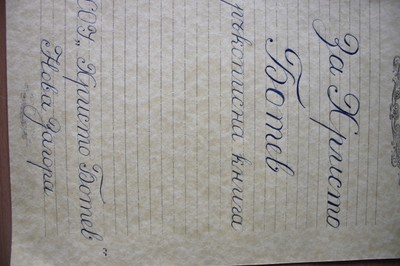 За Христо
Ботев
ръкописна книга
СОУ „Христо Ботев“
Нова Загора